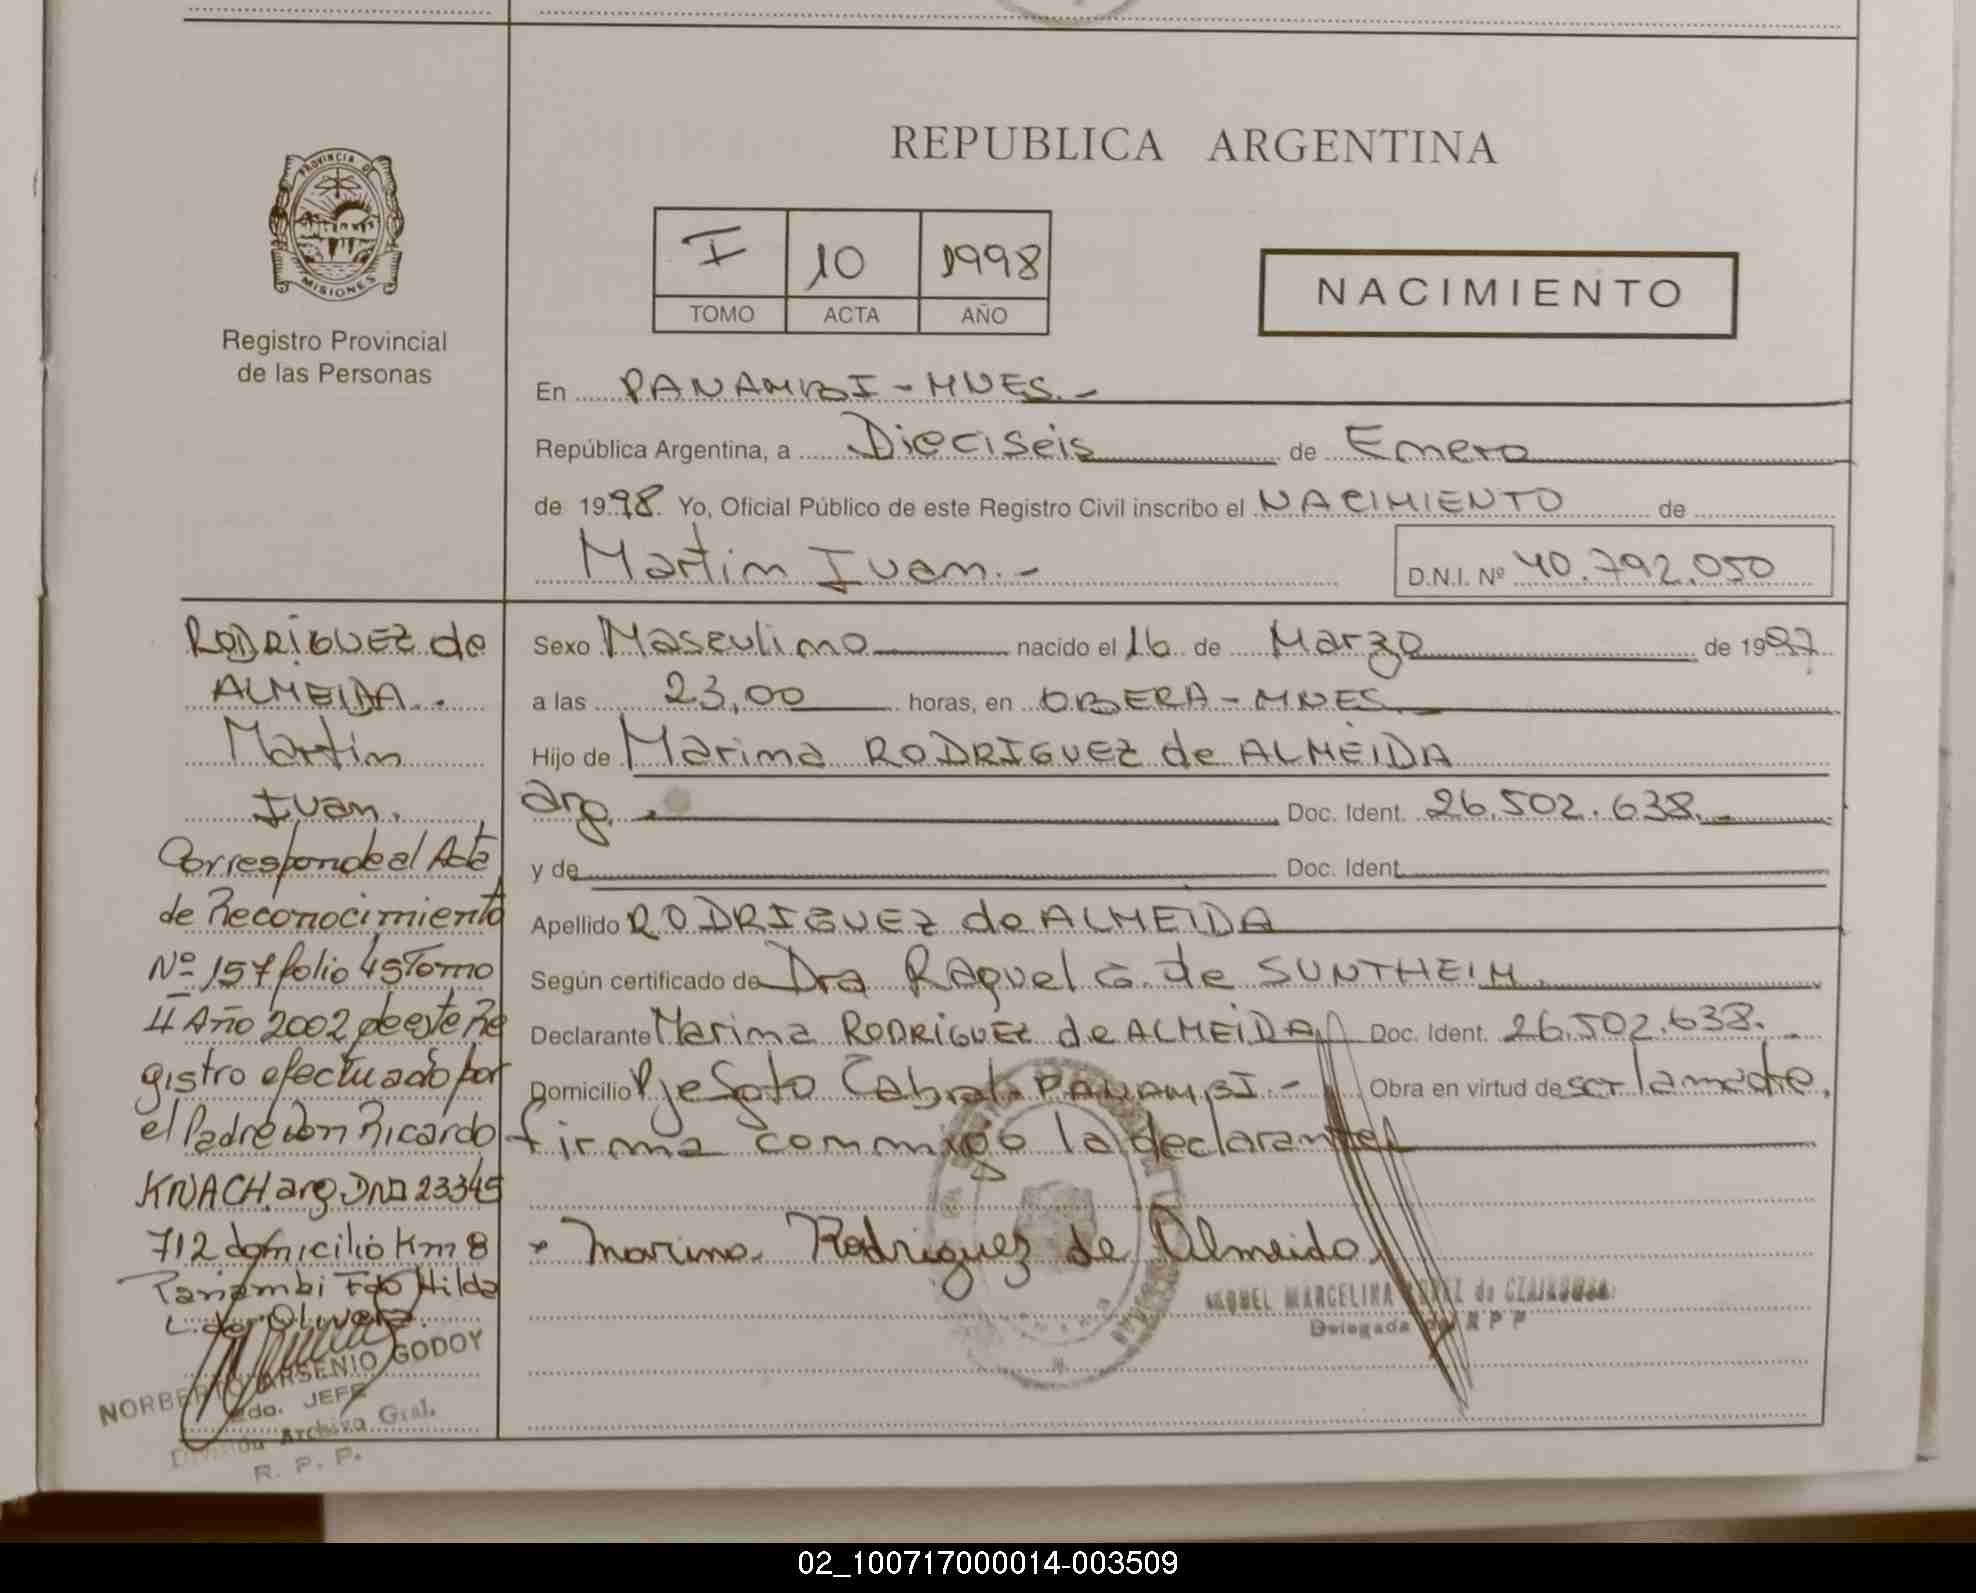 REPUBLICA ARGENTINA
PROVINCIA DE
MISIONES
Registro Provincial
de las Personas
I 10 1998
TOMO ACTA AÑO
NACIMIENTO
En PANAMBI - MNES.-
República Argentina, a Dieciseis de Enero
de 1998. Yo, Oficial Público de este Registro Civil inscribo el NACIMIENTO de
Martin Ivan.-
D.N.I. Nº 40.792.050
RODRIGUEZ de
ALMEIDA.
Martin
Ivan.
Corresponde al Acta
de Reconocimiento
Nº 157 folio 45 Tomo
II Año 2002 de este Re
gistro efectuado por
el Padre don Ricardo
KNACH. arg DNI 23345
712 domicilio Km 8
Panambi Fdo Hilda
L. de Olivera.
NORBERTO ARSENIO GODOY
JEFE
División Archivo Gral.
R. P. P.
Sexo Masculino nacido el 16 de Marzo de 1997
a las 23,00 horas, en OBERA - MNES
Hijo de Marina RODRIGUEZ de ALMEIDA
arg. Doc. Ident. 26.502.638.-
y de Doc. Ident.
Apellido RODRIGUEZ de ALMEIDA
Según certificado de Dra Raquel G. de SUNTHEIM
Declarante Marina RODRIGUEZ de ALMEIDA Doc. Ident. 26.502.638.
Domicilio Pje Sgto Cabral PANAMBI.- Obra en virtud de ser la madre,
firma conmigo la declarante
Marina Rodriguez de Almeida
RAQUEL MARCELINA de
Delegada R P P
02_100717000014-003509